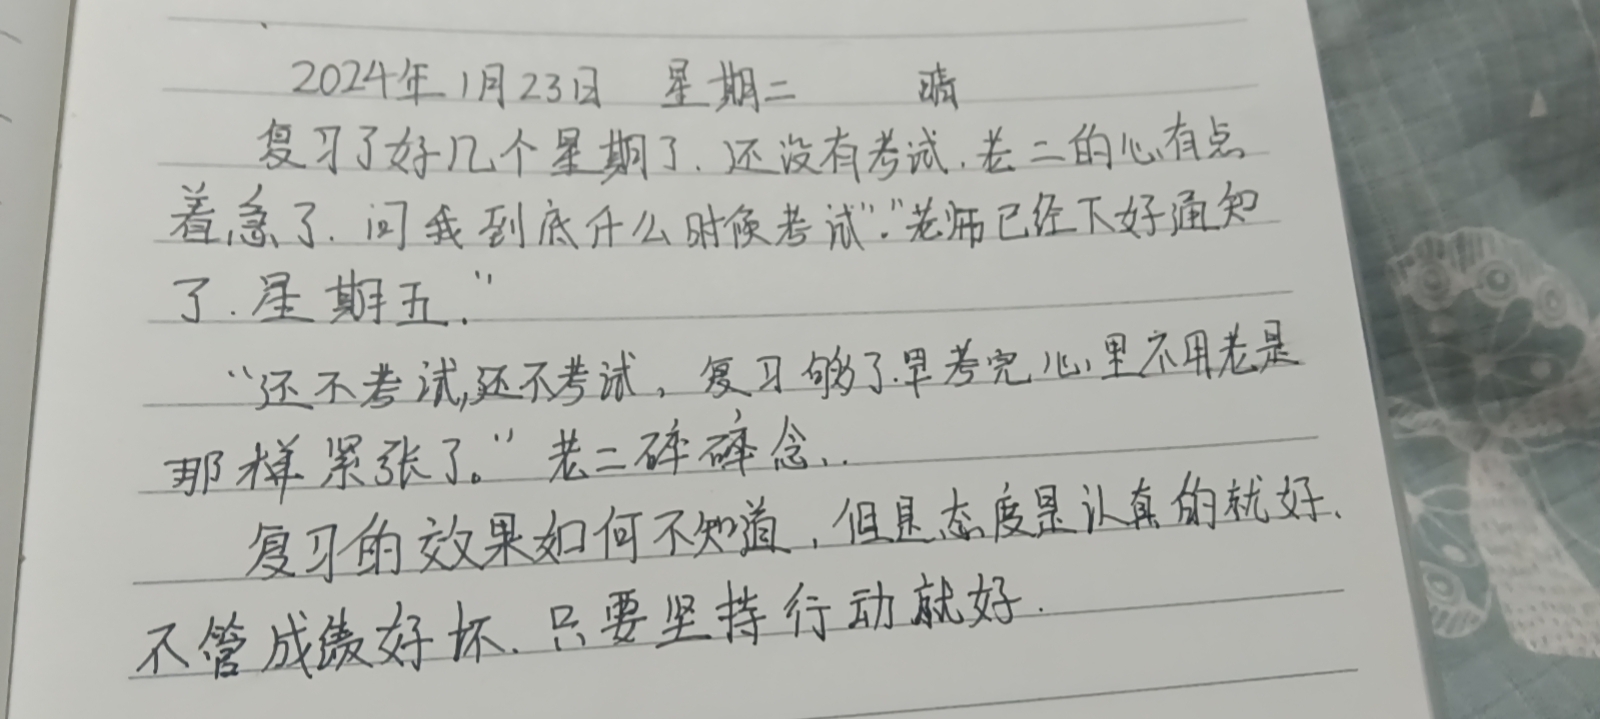 2024年1月23日 星期二 晴
复习了好几个星期了.还没有考试.老二的心有点
着急了.问我到底什么时候考试"."老师已经下好通知
了.星期五."
"还不考试,还不考试,复习够了.早考完心里不用老是
那样紧张了。"老二碎碎念..
复习的效果如何不知道,但是态度是认真的就好.
不管成绩好坏.只要坚持行动就好.